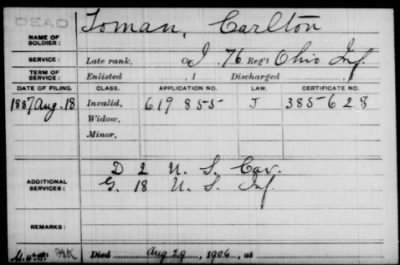 DEAD
NAME OF SOLDIER: Toman, Carlton
SERVICE: Late rank, Co. I, 76 Reg't Ohio Inf.
TERM OF SERVICE: Enlisted , 1 Discharged , 1
DATE OF FILING. CLASS. APPLICATION NO. LAW. CERTIFICATE NO.
1887 Aug. 18 Invalid, 619 855 J 385628
Widow,
Minor,
D 2 U. S. Cav.
ADDITIONAL SERVICES: G. 18 U. S. Inf.
REMARKS:
Died Aug 29, 1906, at